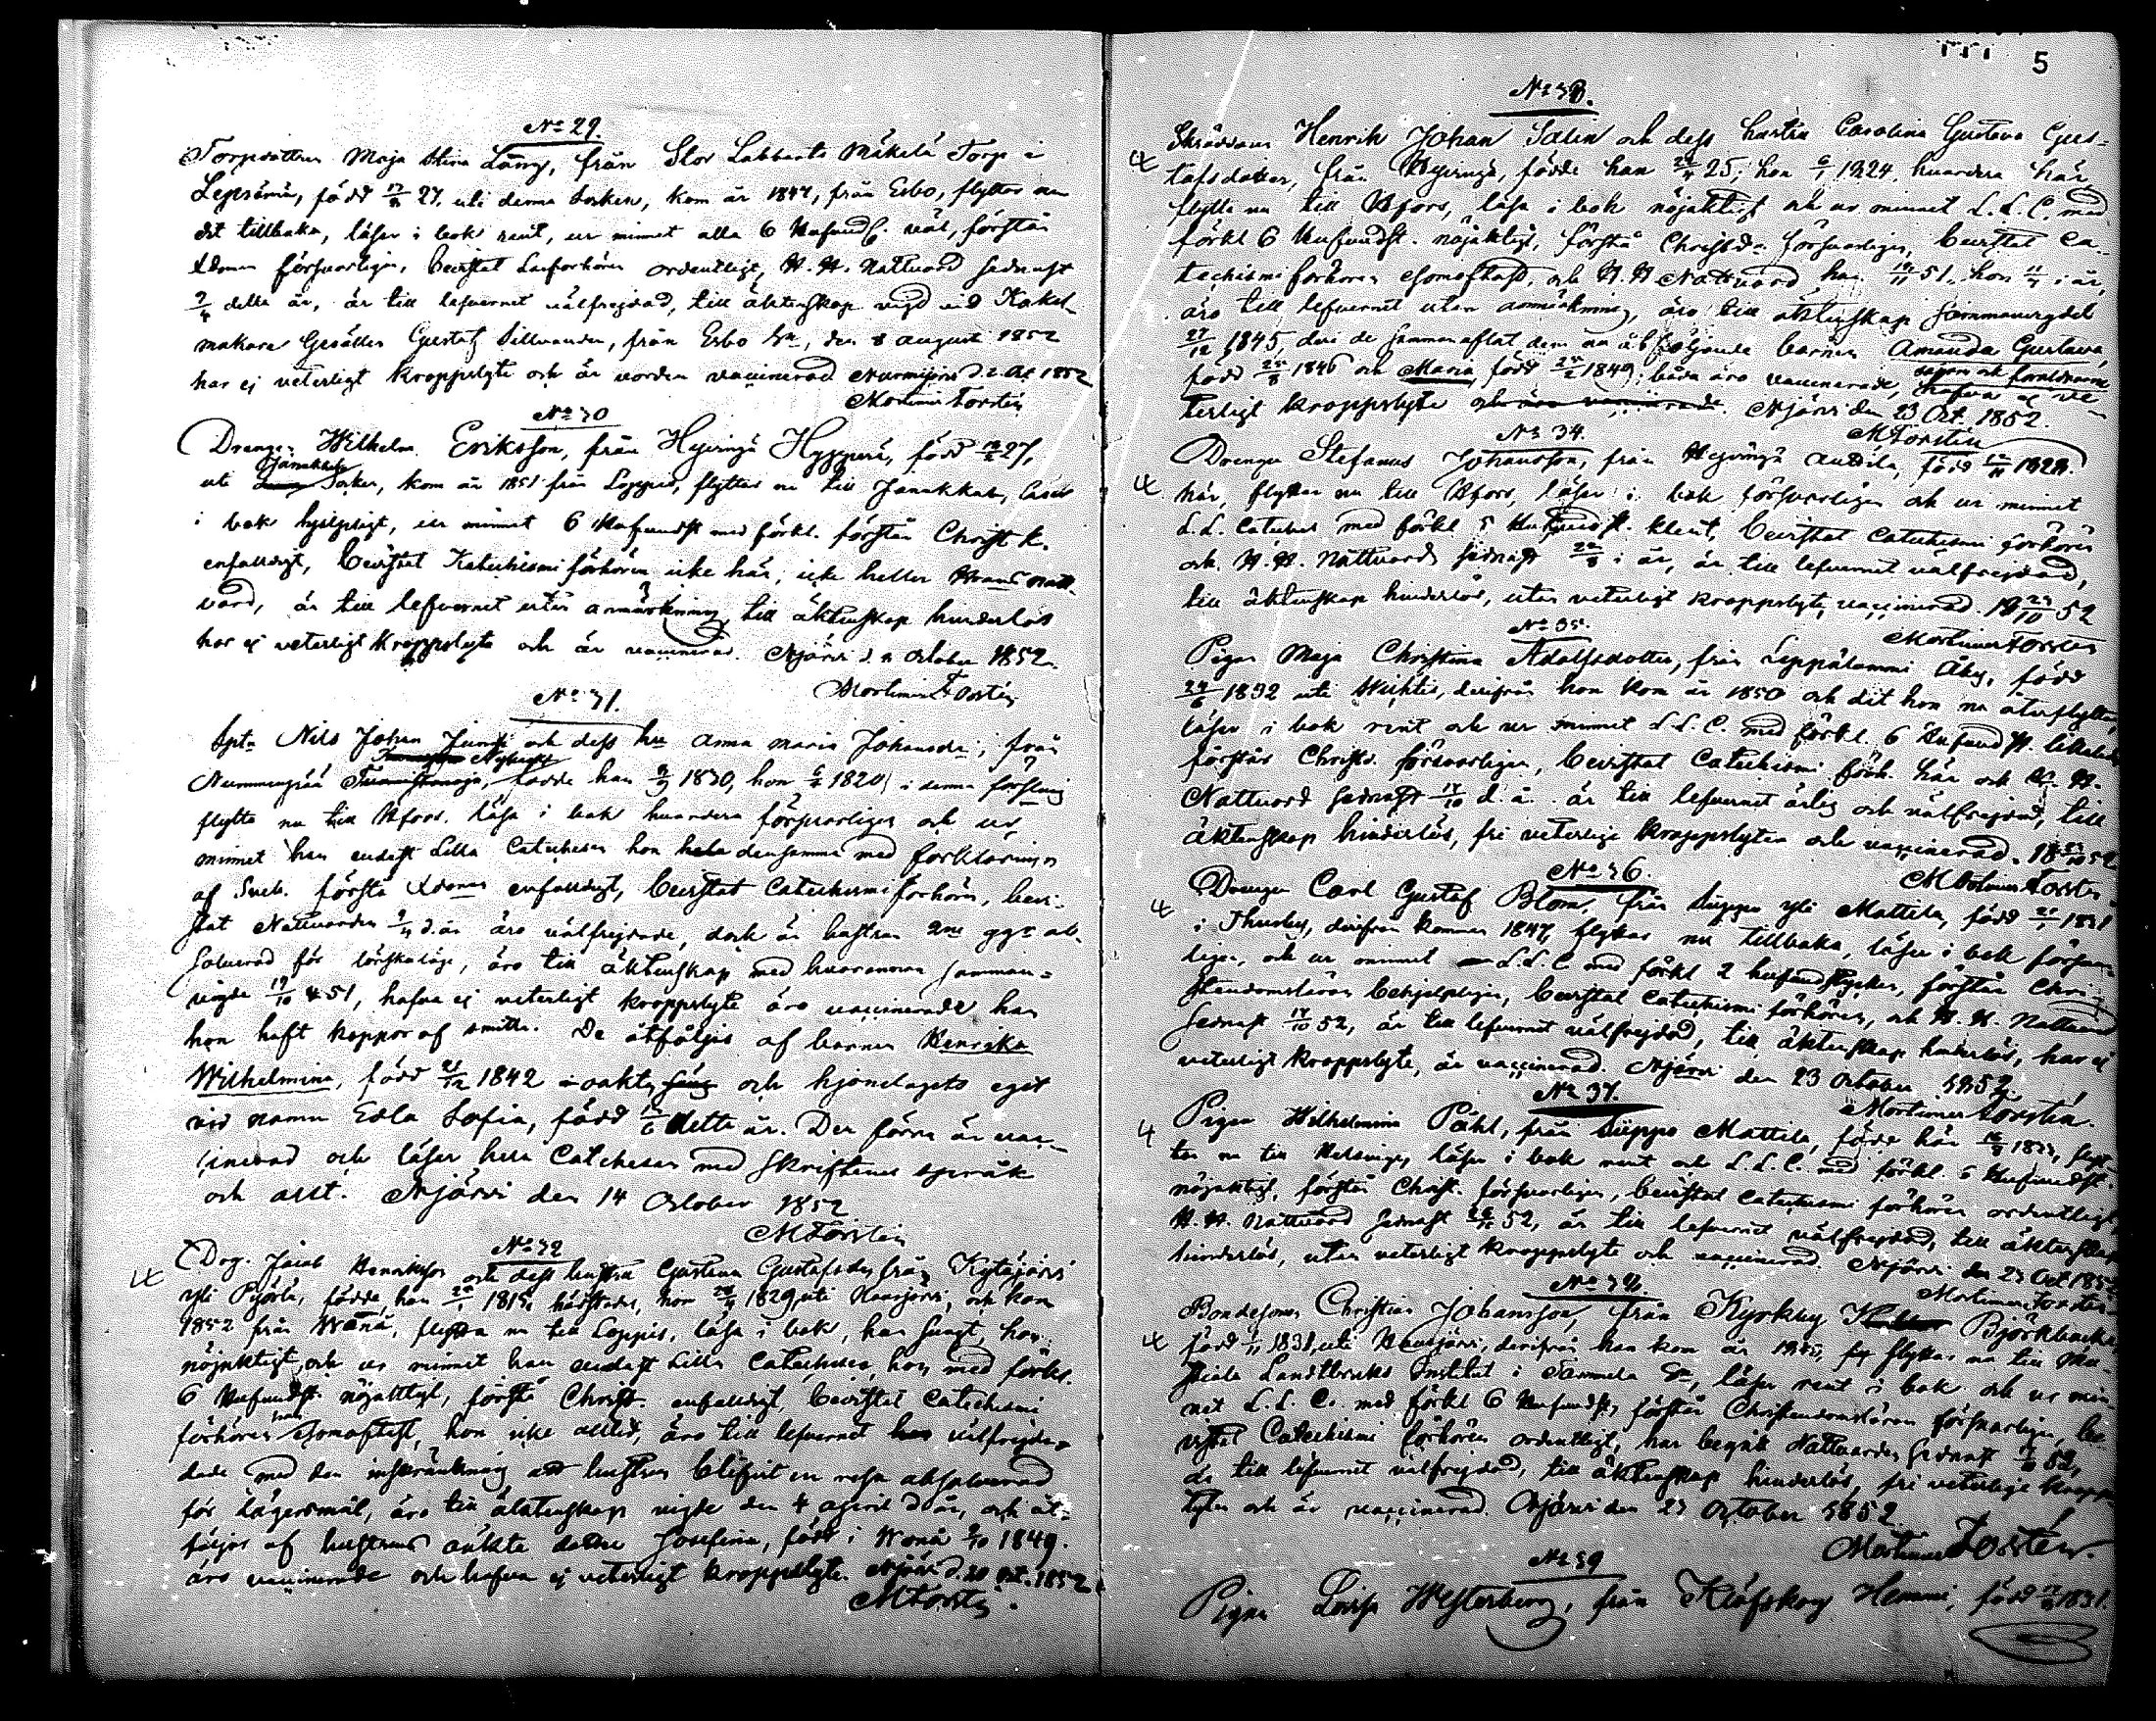 No 29.
Torpdottren Maja Stina Lång, från Stor Labbarts Mäkelä Torp i
Lepsämä, född 17/ 27. uti denna Socken, kom år 1847, från Esbo, flyttar nu
dit tillbaka, läser i bok rent, ur minnet alla 6 Hufvudst. väl, förstår
Xdomen försvarligen, bevistat Läsförhören ordentligt, H. H. Nattvard sednast
2/4 detta år, är till lefvernet välfrejdad, till äktenskap vigd vid Kakel-
makare Gesällen Gustaf Sillvander, från Esbo Sn, den 8 augusti 1852
har ej veterligt kroppslyte och är vorden vaccinerad Nurmijärvi d. 2 Oct 1852
Mortimer Forstén
No 30
Drengen Wilhelm Eriksson, från Hyvingä Hyyppärä, född 27,
Janakkala
uti Socken, kom år 1851 från Loppis, flyttar nu till Janakkala, läser
i bok hjelpligt, ur minnet 6 Hufvudst med förkl. förstår Christ k.
enfaldigt, bevistat Katechismi förhören icke här, icke heller Hrans Natt-
vard, är till lefvernet utan anmärkning, till äktenskap hinderlös
har ej veterligt kroppslyte och är vaccinerad. Njärvi d. October 1852.
Mortimer Forstén
No 31.
Spt. Nils Johan och dess hu Anna Maria Johansdr, från
Nyhygge
Nummenpää födde han 9/9 1830, hon 6/ 1820 i denna församling
flytta nu till Hfors. läsa i bok hvardera försvarligen och ur
minnet han endast Lilla Catechesen hon hela densamma med förklaringen
af Sveb. förstå Xdomen enfaldigt, bevistat Catechismi förhören, bevi-
stat Nattvarden 9/4 d. år äro välfrejdade, dock är hustrun 2ne ggr ab-
solverad för lönskaläge, äro till äktenskap med hvarannan samman-
vigde 19/10 51, hafva ej veterligt kroppslyte äro vaccinerade han
hon haft koppor af smitta. De åtföljas af barnen Henrika
Wilhelmina, född 21/12 1842 i oäkta säng och hjonelagets eget
vid namn Edla Sofia, född /6 detta år. Den förra är vac-
cinerad och läser hela Catechesen med Skriftenes språk
och allt. Njärvi den 14 October 1852
M Forstén
No 32
Dog. Jacob Henriksson och dess hustru Gustava Gustafsdr från Kytäjärvi
yli Pijorla, födde, han 1815, härstädes, hon 1829 uti Hausjärvi, och kom
1852 från Wånå, flytta nu till Loppis, läsa i bok, han svagt, hon
nöjaktigt, och ur minnet han endast Lilla Catechesen, hon med förkl.
6 Hufvudst. nöjaktigt, förstå Christ. enfaldigt, bevistat Catechismi
förhören han somoftast, hon icke alltid, äro till lefvernet välfrejda-
dade med den inskränkning att hustrun blifvit en resa absolverad
för lägersmål, äro till äktenskap vigde den 4 april d. år, och åt-
följas af hustruns oäkta dotter Josefina, född i Wånå 2/10 1849.
äro vaccinerade och hafva ej veterligt kroppslyte. Njärvi d. 20 Oct. 1852
M Forstén.
5
No 33.
Skräddaren Henrik Johan Salin och dess hustru Carolina Gustava Gus-
tafsdotter, från Hyvingä, födde han 25, hon 6/1 1824, hvardera här
flytta nu till Hfors, läsa i bok nöjaktigt och ur minnet L. L. C. med
förkl 6 Hufvudst. nöjaktigt, förstå Christdn försvarligen, bevistat Ca-
techismi förhören somoftast, och H. H Nattvard han 51, hon i år,
äro till lefvernet utan anmärkning, äro till äktenskap sammanvigde
27/12 1845, dem åtfölja barnen Amanda Gustava,
född 1846 och Maria född 1849, båda äro vaccinerade, såsom och föräldrarne hafva ej ve-
terligt kroppslyte och äro vaccinerade. Njärvi den 23 Oct. 1852.
M Forstén
No 34.
Drengen Stefanus Johansson, från Hyvingä Anttila, född 1828
här, flyttar nu till Hfors, läser i bok försvarligen och ur minnet
L. L. Cateches med förkl 5 Hufvudst. klent, bevistat Catechismi förhören
och H. H. Nattvard sednast i år, är till lefvernet välfrejdad,
till äktenskap hinderlös, utan veterligt kroppslyte, vaccinerad. 23/10 52
Mortimer Forstén
No 35.
Pigan Maja Christina Adolfsdotter, från Leppälammi Åby, född
24/6 1832 uti Wichtis, derifrån hon kom år 1850 och dit hon nu återflyttar,
läser i bok rent och ur minnet L. L. C. med förkl. 6 Hufvudst. likaledes
förstår Christd. försvarligen, bevistat Catechismi förh. här och H. H.
Nattvard sednast 17/10 d. å. är till lefvernet ärlig och välfrejdad, till
äktenskap hinderlös, fri veterlige kroppslyten och vaccinerad. 23/10 52
Mortimer Forstén
No 36.
Drengen Carl Gustaf Blom, från Suppo yli Mattila, född 1831
i Thusby, derifrån kommen 1847, flyttar nu tillbaka, läser i bok försvar-
ligen, och ur minnet L. L C med förkl 2 hufvudstycken, förstår Chri-
stendomsläran behjelpligen, bevistat Catechismi förhören, och H. H. Nattvard
sednast 17/10 52, är till lefvernet välfrejdad, till äktenskap hinderlös, har ej
veterligt kroppslyte, är vaccinerad. Njärvi den 23 October 1852.
Mortimer Forstén.
No 37.
Pigan Wilhelmina Påhl, från Suppo Mattila, född här flyt-
tar nu till Helsinge, läser i bok rent och L. L. C. med förkl. 5 Hufvudst.
nöjaktigt, förstår Christ. försvarligen, bevistat Catechismi förhören ordentligt,
H. H. Nattvard sednast 52, är till lefvernet välfrejdad, till äktenskap
hinderlös, utan veterligt kroppslyte och vaccinerad. Njärvi den 23 Oct 1852
Mortimer Forstén
No 38.
Bondesonen Christian Johansson, från Kyrkby Björkbacka
född 1831, uti Hausjärvi, derifrån han kom år flyttar nu till Mu-
stiala Landtbruks Institut i Tammela Sn, läser rent i bok och ur min-
net L. L. C. med förkl 6 Hufvudst, förstår Christendomsläran försvarligen, be-
vistat Catechismi förhören ordentligt, har begått Nattvarden sednast 52,
är till lefvernet välfrejdad, till äktenskap hinderlös, fri veterlige kropps-
lyten och är vaccinerad. Njärvi den 23 October 1852.
Mortimer Forstén.
No 39
Pigan Lovisa Westerberg, från Klöfskog Hemmi, född 1831.